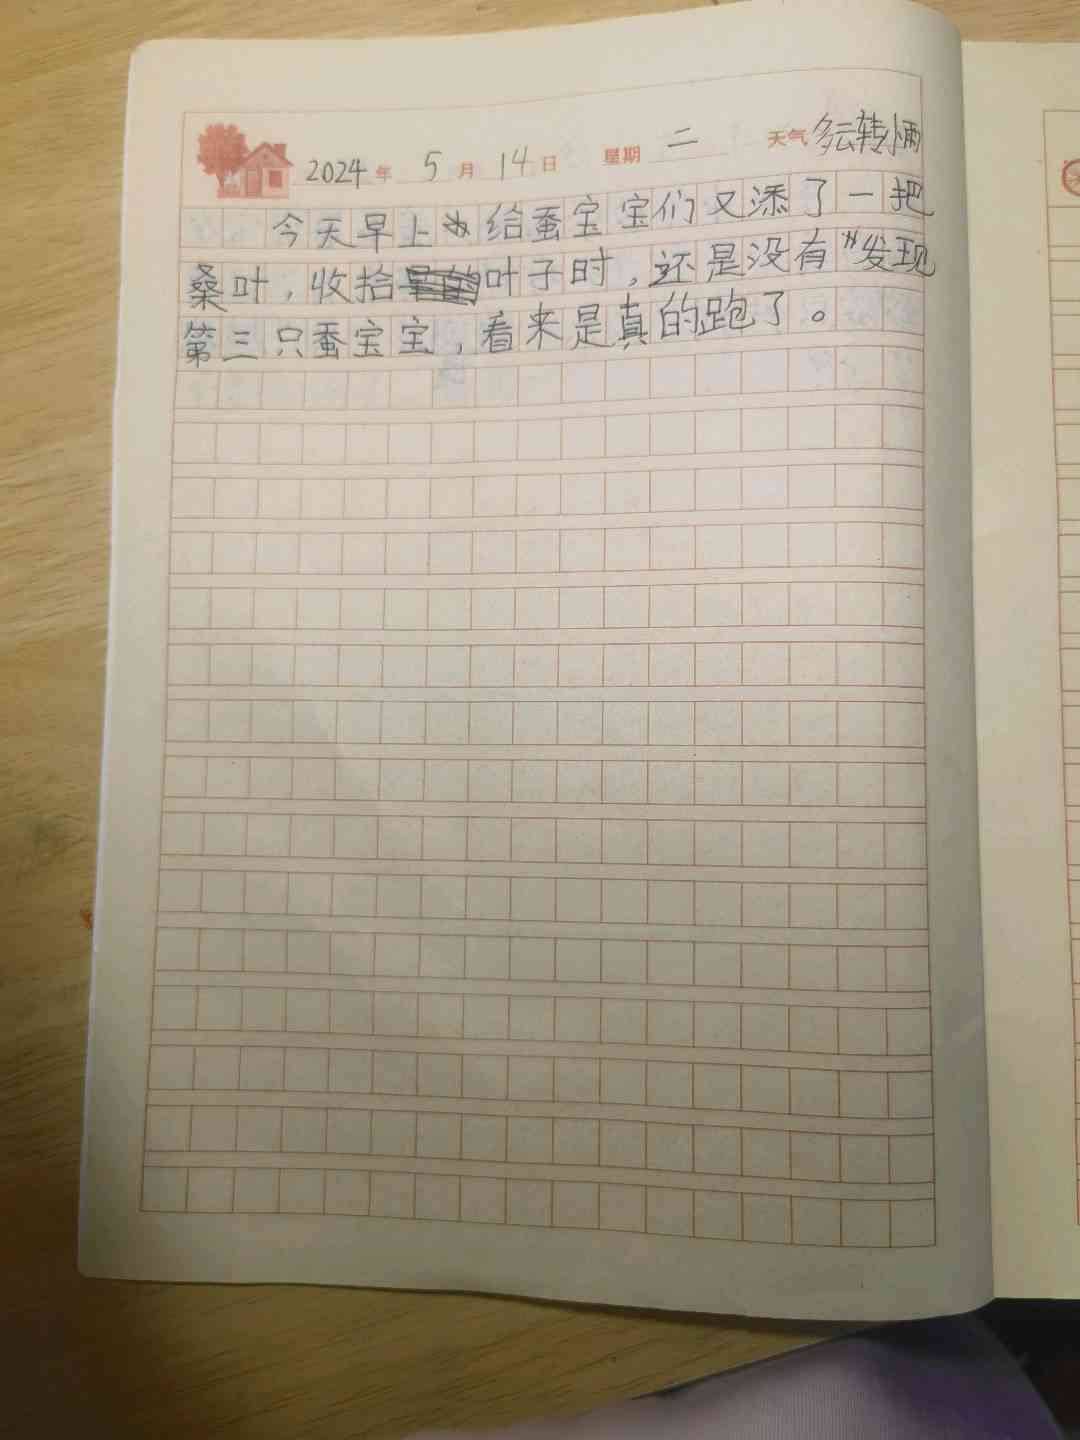 2024年 5月14日 星期 二 天气 多云转小雨
今天早上给蚕宝宝们又添了一把
桑叶，收拾叶子时，还是没有"发现
第三只蚕宝宝，看来是真的跑了。